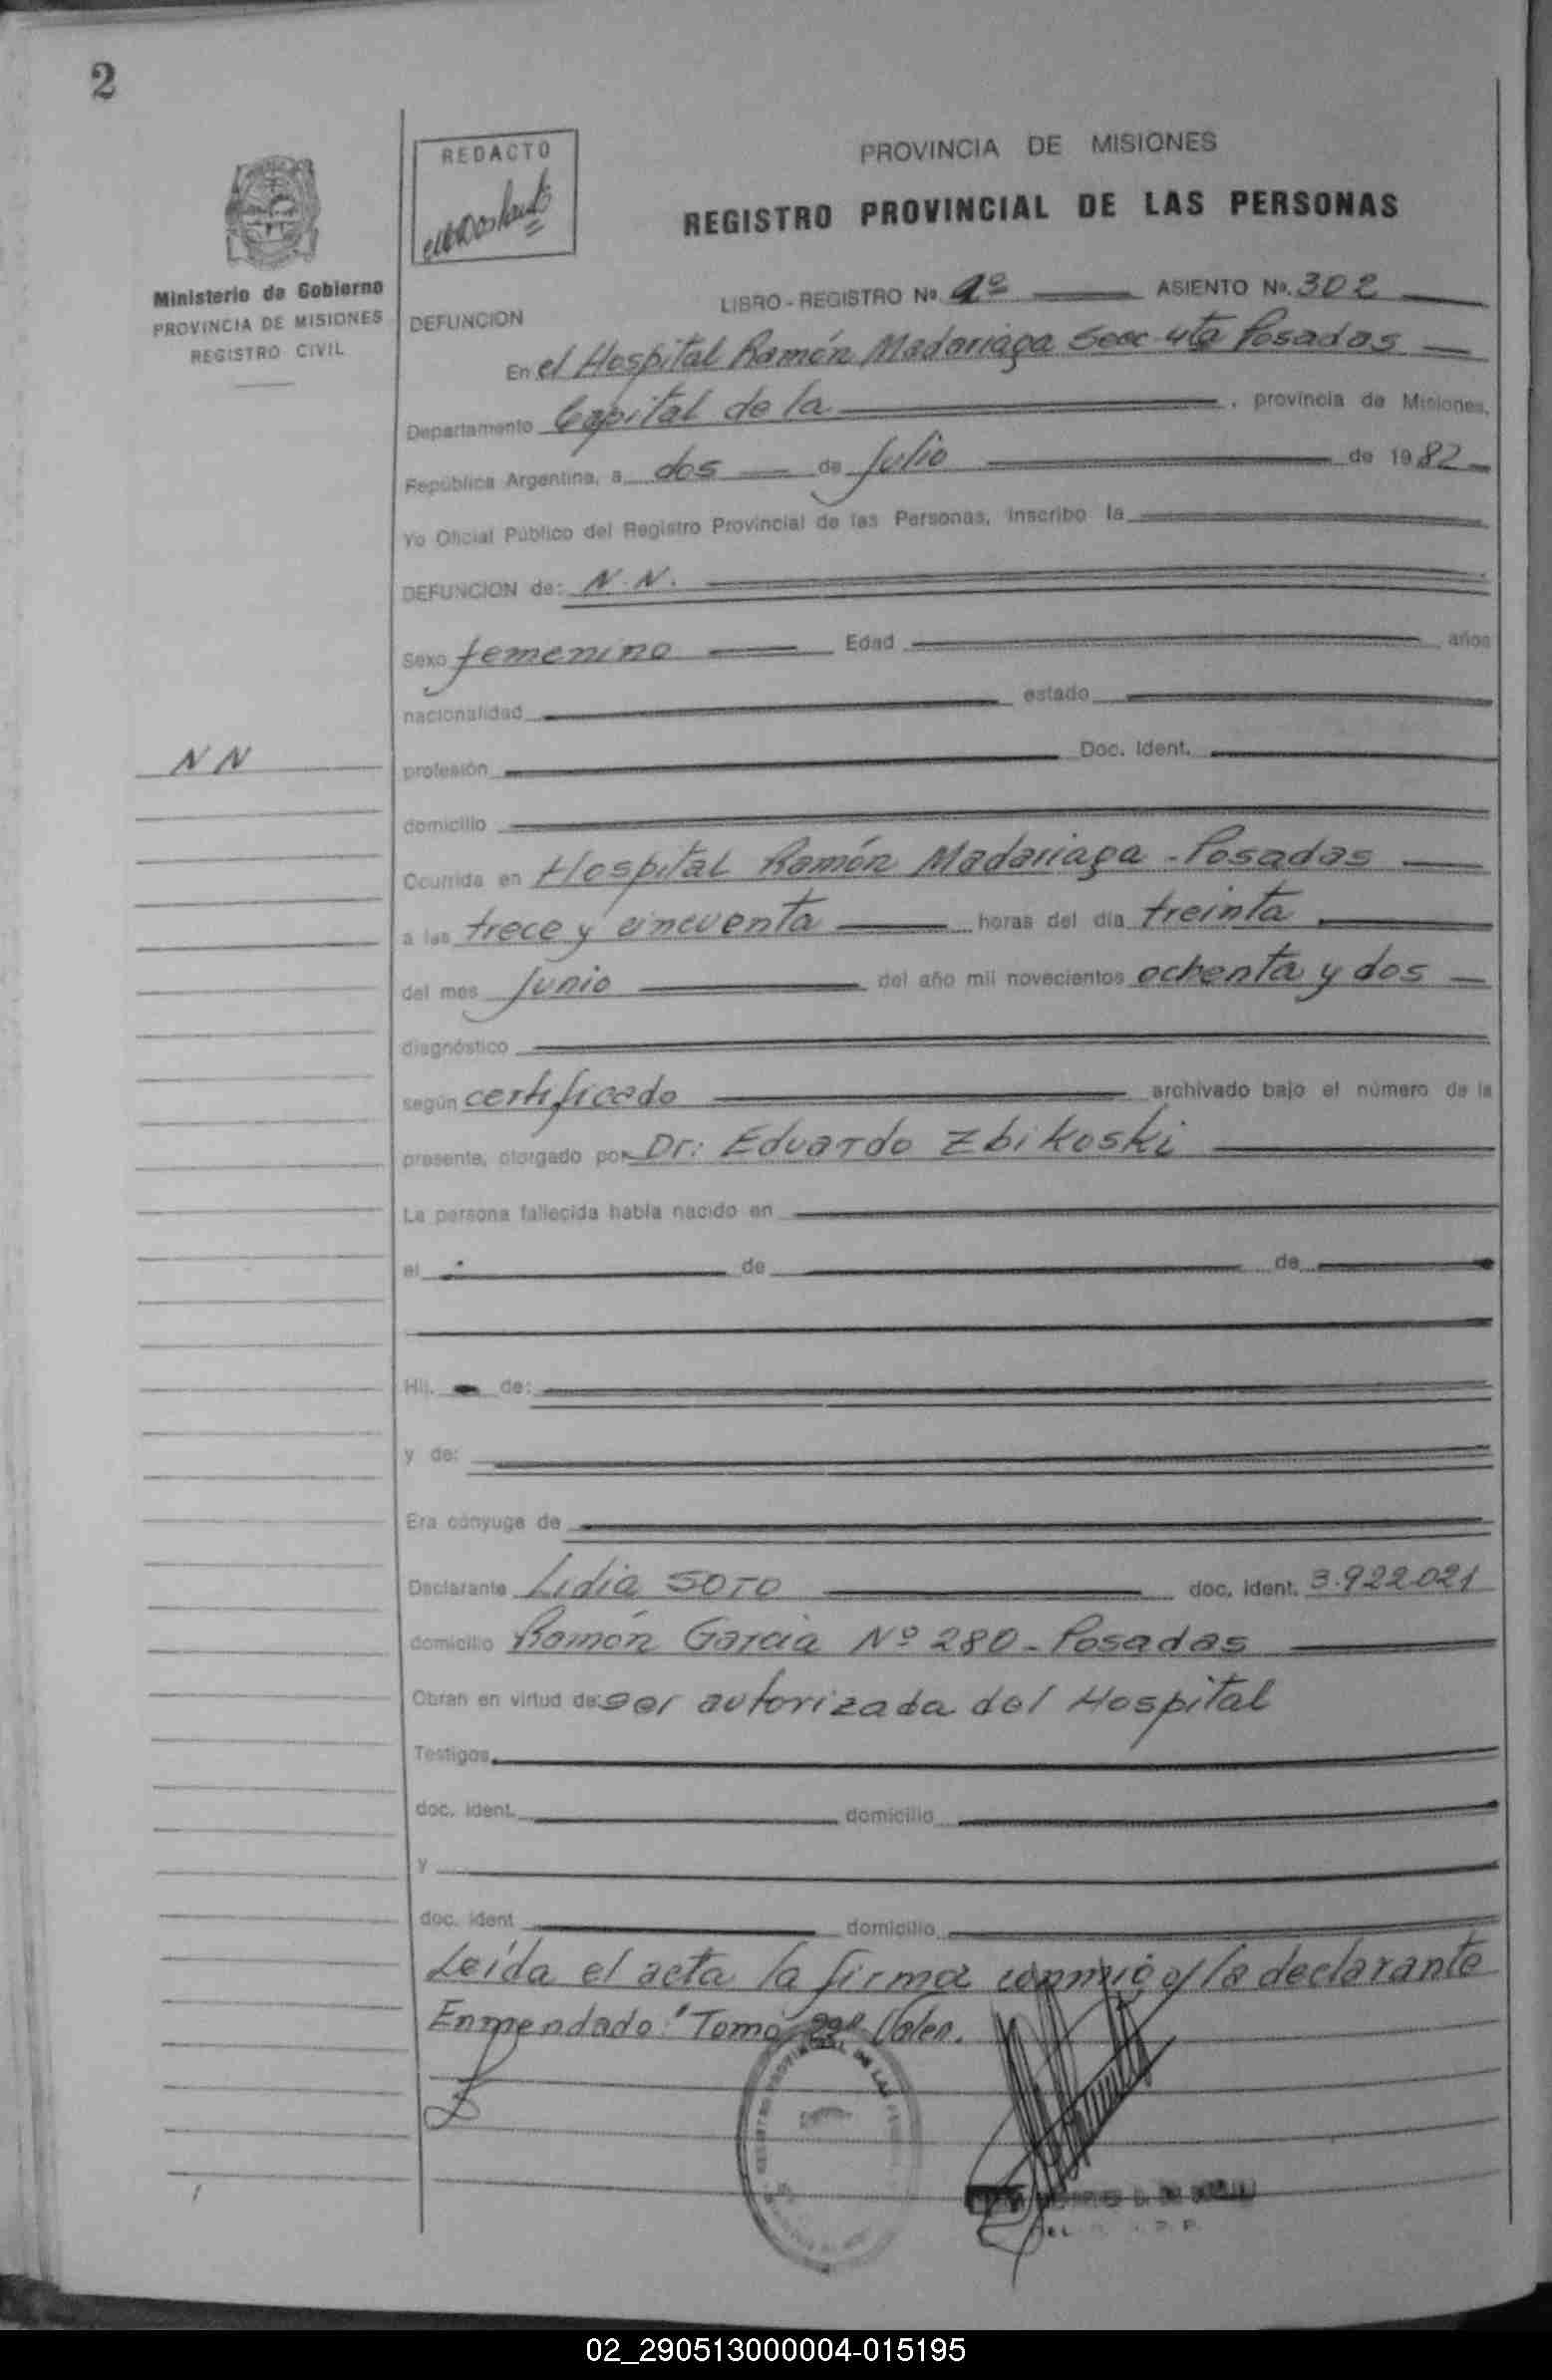 2
REDACTO
PROVINCIA DE MISIONES
REGISTRO PROVINCIAL DE LAS PERSONAS
Ministerio de Gobierno
PROVINCIA DE MISIONES
REGISTRO CIVIL
LIBRO - REGISTRO No. ASIENTO No. 302
DEFUNCION
En el Hospital Ramón Madariaga Secc 4ta Posadas
Departamento Capital de la , provincia de Misiones,
República Argentina, a dos de Julio de 1982
Yo Oficial Público del Registro Provincial de las Personas, inscribo la
DEFUNCION de: N.N.
Sexo femenino Edad años
nacionalidad estado
N N
profesión Doc. Ident.
domicilio
Ocurrida en Hospital Ramón Madariaga - Posadas
a las trece y cincuenta horas del día treinta
del mes Junio del año mil novecientos ochenta y dos
diagnóstico
según certificado archivado bajo el número de la
presente, otorgado por Dr: Eduardo Zbikoski
La persona fallecida había nacido en
el de de
Hij. de:
y de:
Era cónyuge de
Declarante Lidia SOTO doc. ident. 3.922.021
domicilio Ramón Garcia Nº 280 - Posadas
Obran en virtud de: ser autorizada del Hospital
Testigos
doc. ident. domicilio
y
doc. ident domicilio
Leída el acta la firma conmigo la declarante
Enmendado: "Tomo Valen.
02_290513000004-015195